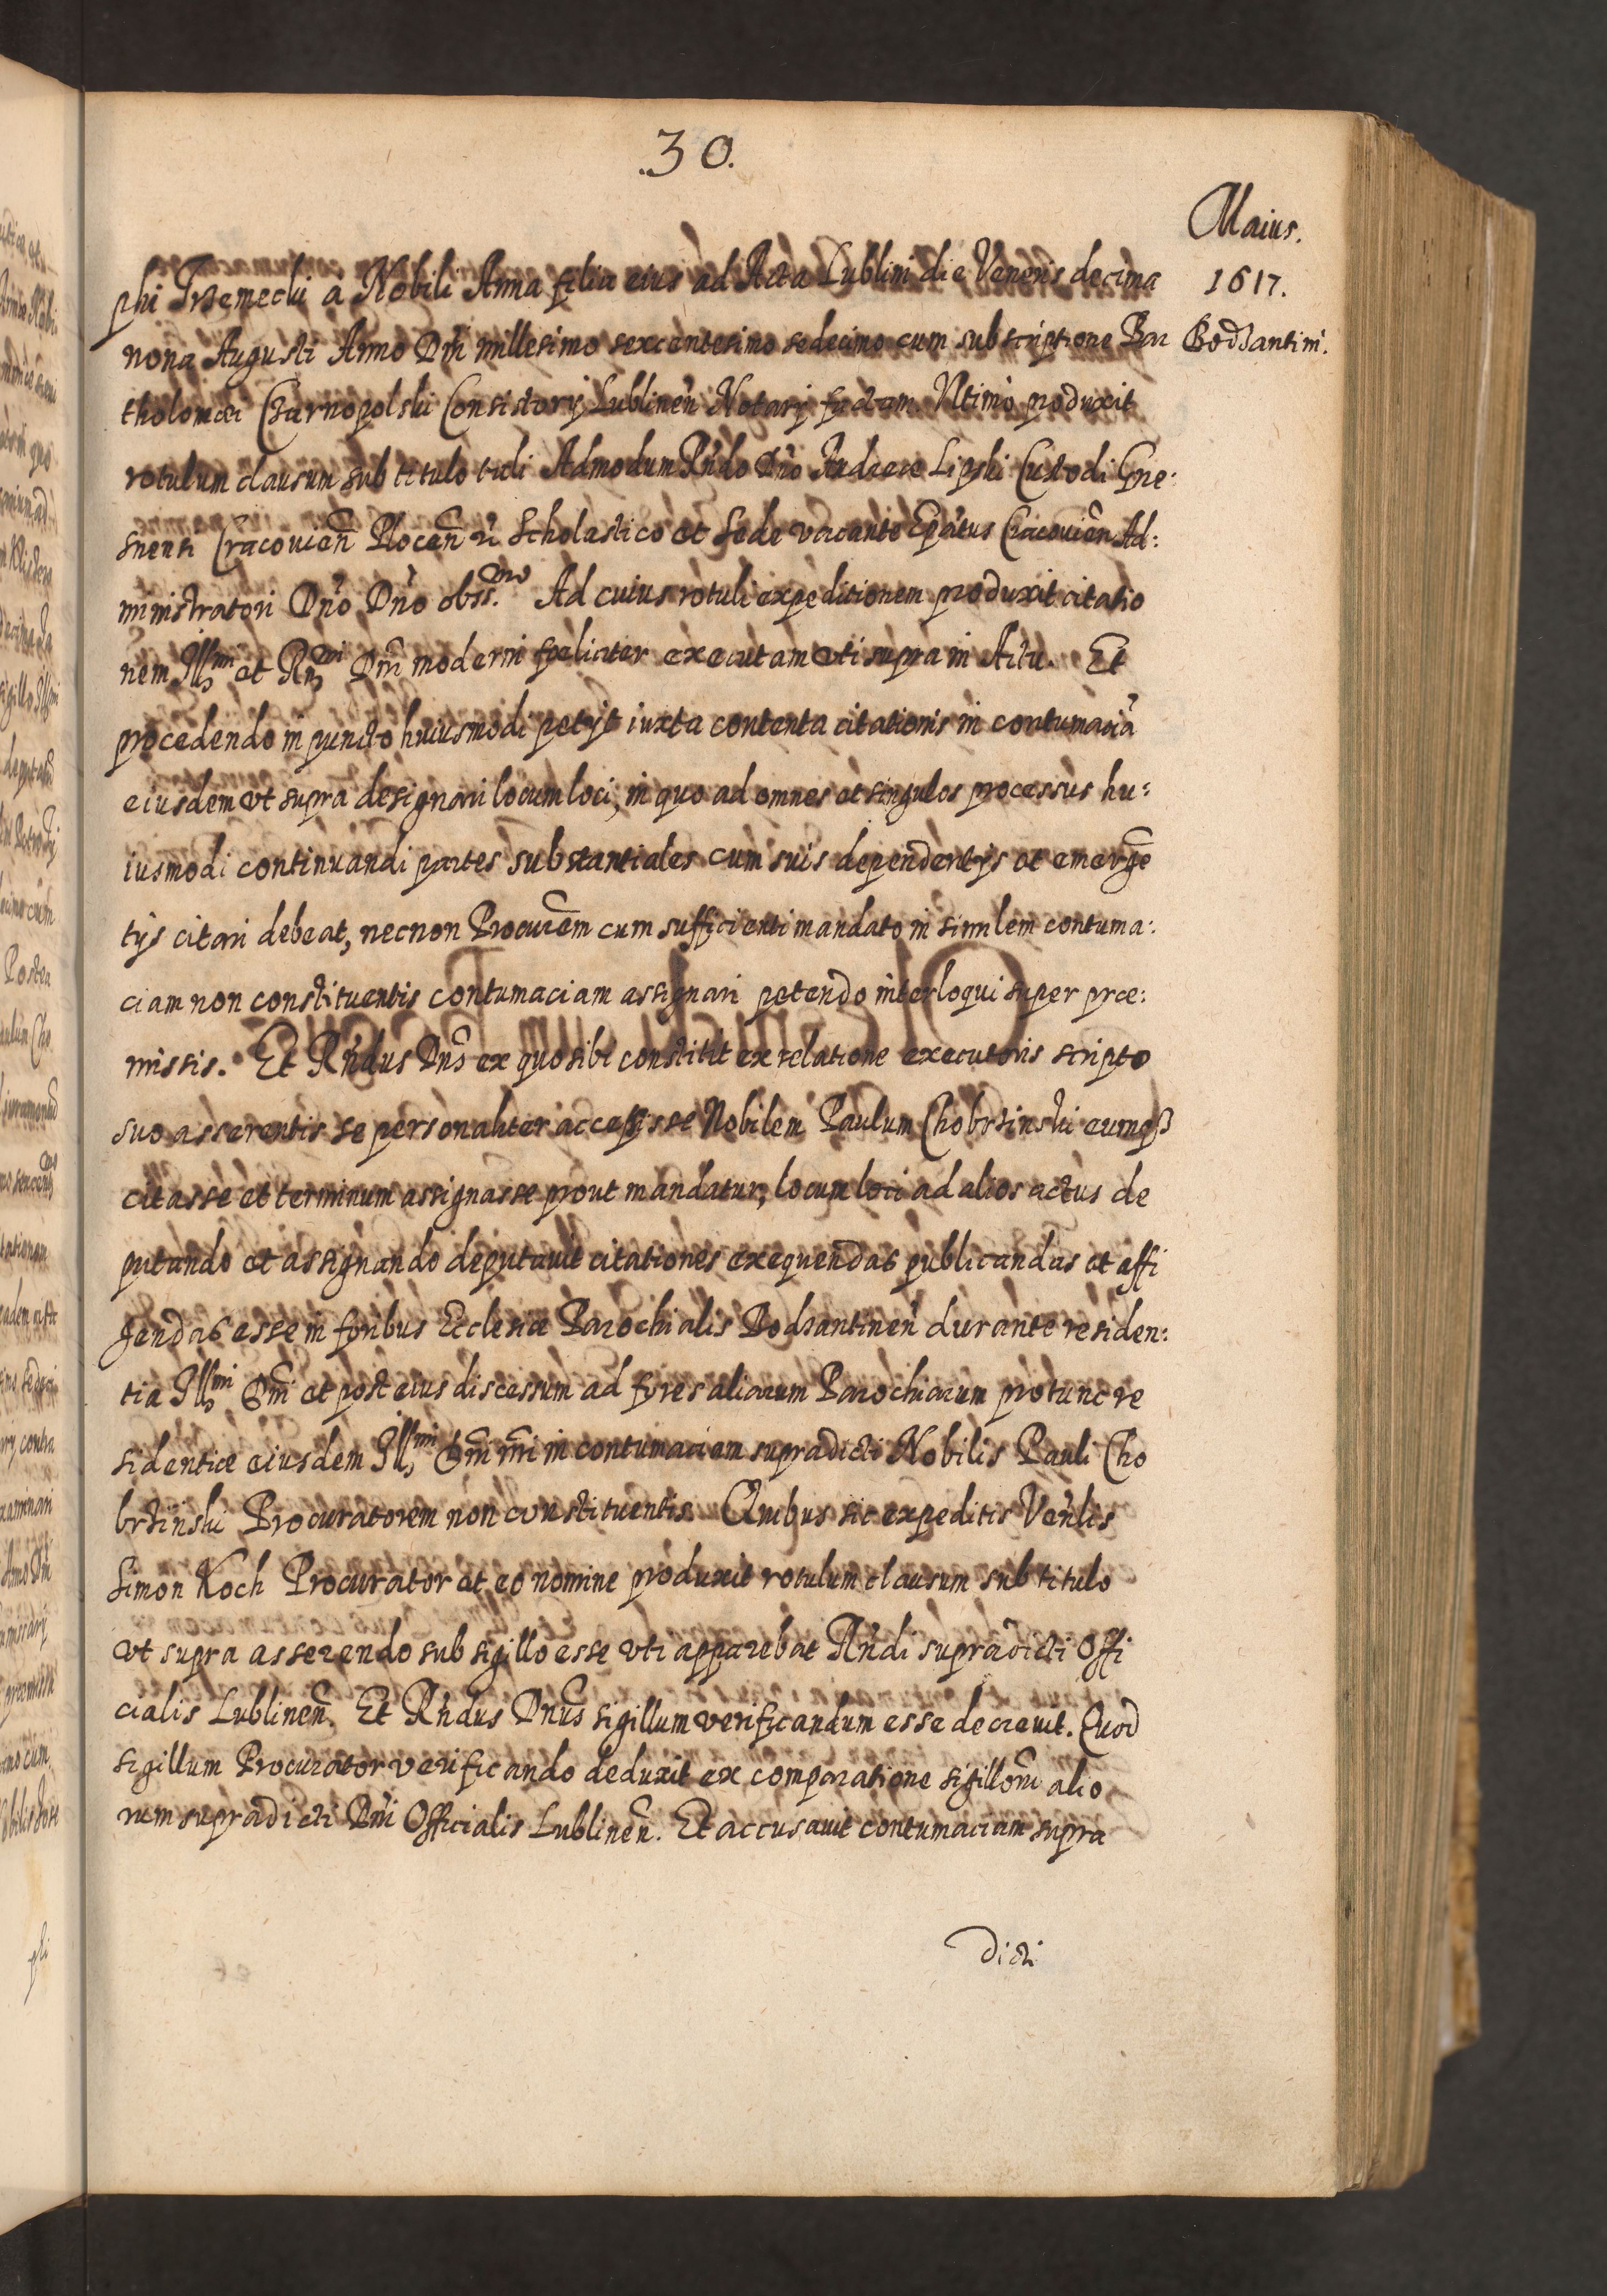 .30.
Maius.
1617.
Bodzantini.
phi Trzemecki à Nobili Anna filia eius ad Acta Lublini die Veneris decima
nona Augusti Anno Dni millesimo sexcentesimo sedecimo cum subscriptione Bar
tholomæi Czarnopolski Consistorij Lublinen̄ Notarij factam. Vltimò produxit
rotulum clausum sub titulo tali Admodum Rn̄do Dn̄o Andreæ Lipski Custodi Gne:
snensi Cracouien̄ Plocen̄ Scholastico et Sede vacante Ep̄atus Cracouien̄ Ad:
ministratori Dn̄o Dn̄o obss.mo Ad cuius rotuli expeditionem produxit citatio
nem Illmi et Rmi Dn̄i moderni fœliciter executam vti supra in Actu. Et
procedendo in puncto huiusmodi petijt iuxta contenta citationis in contumaciā
eiusdem vt supra designari locum loci, in quo ad omnes et singulos processus hu:
iusmodi continuandi partes substantiales cum suis dependentijs et emergē
tijs citari debeat, necnon Procurēm cum sufficienti mandato in similem contuma:
ciam non constituentis contumaciam assignari petendo interloqui super præ:
missis. Et Rn̄dus Dn̄s ex quo sibi constitit ex relatione executoris scripto
suo asserentis se personaliter accessisse Nobilem Paulum Chobrzinski eumq3
citasse et terminum assignasse prout mandatur, locum loci ad alios actus de
putando et assignando deputauit citationes exequendas publicandas et affi
gendas esse in foribus Ecclesiæ Parochialis Bodzantinen̄ durante residen:
tia Illmi Dn̄i et post eius discessum ad fores aliarum Parochiarum protunc re
sidentiæ eiusdem Illmi Dn̄i n̄ri in contumaciam supradicti Nobilis Pauli Cho
brzinski Procuratorem non constituentis. Quibus sic expeditis Ven̄lis
Simon Koch Procurator et eo nomine produxit rotulum clausum sub titulo
vt supra asserendo sub sigillo esse vti apparebat Rn̄di supradicti Offi
cialis Lublinen̄. Et Rn̄dus Dn̄us sigillum verificandum esse decreuit. Quod
sigillum Procurator verificando deduxit ex comparatione sigillorū alio
rum supradicti Dn̄i Officialis Lublinen̄. Et accusauit contumaciam supra
dicti